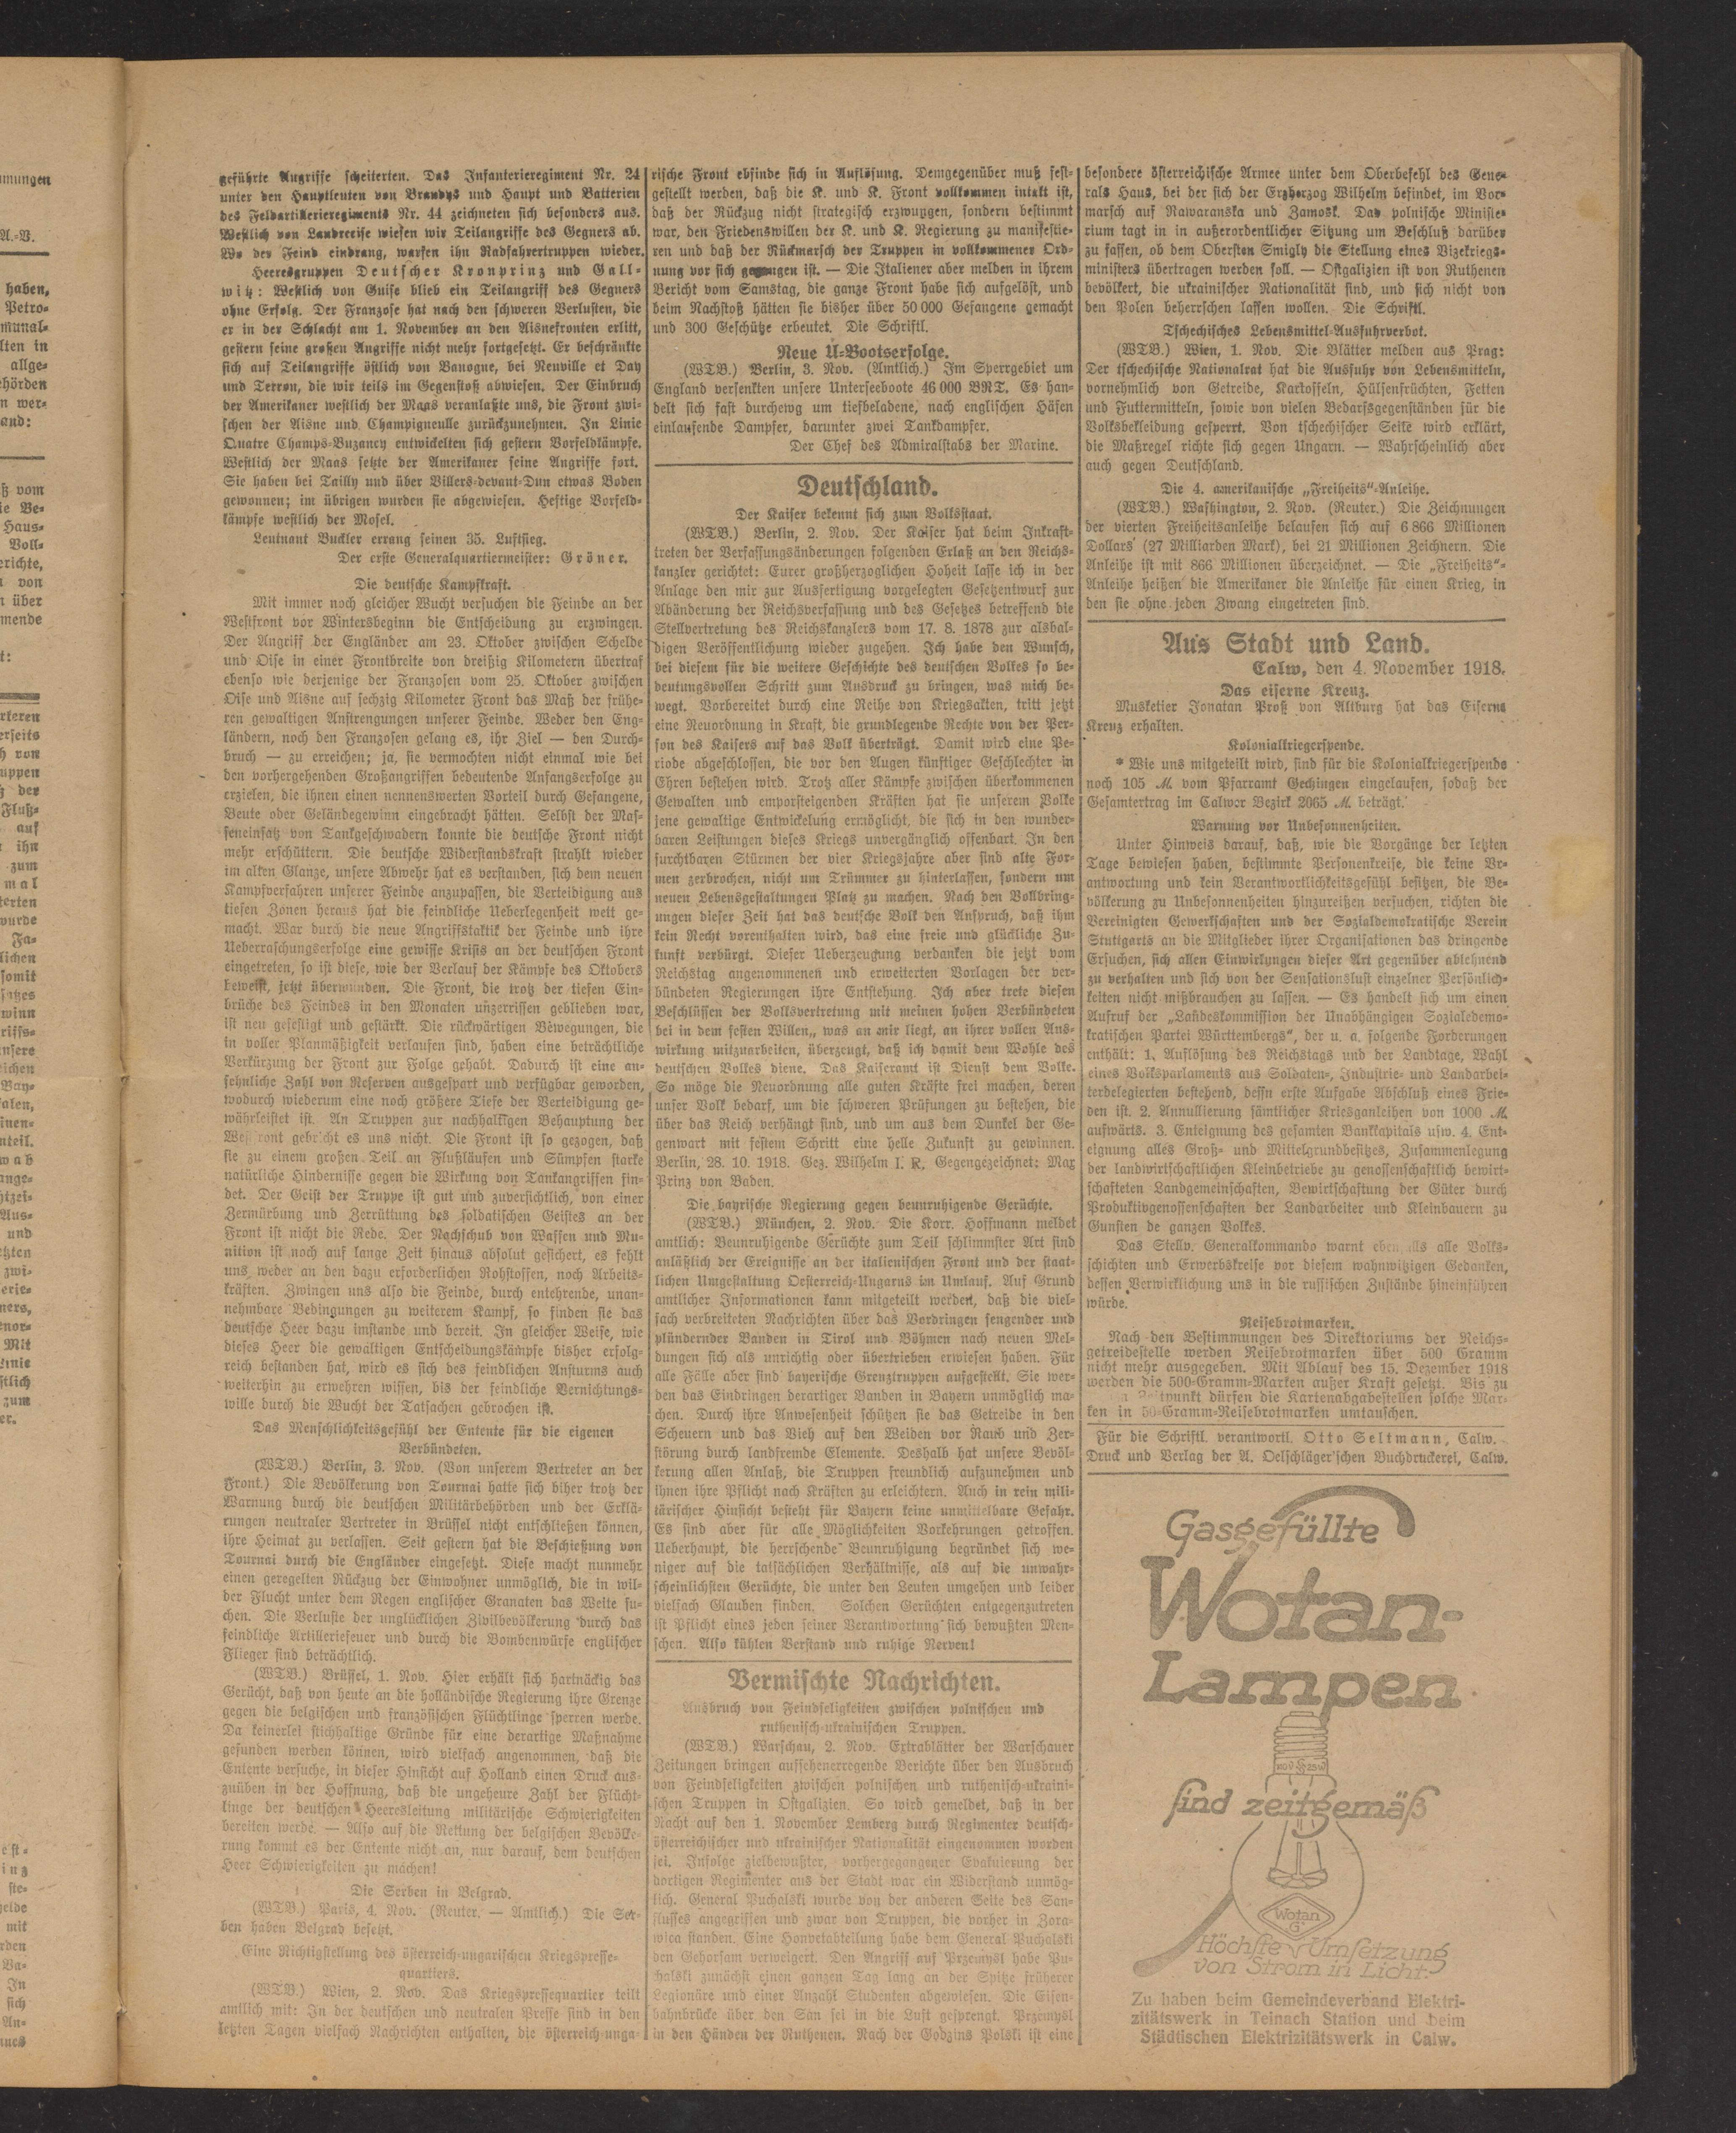 geführte Angriffe scheiterten. Das Infanterieregiment Nr. 24
unter den Hauptleuten von Brandys und Haupt und Batterien
des Feldartillerieregiments Nr. 44 zeichneten sich besonders aus.
Westlich von Landrecise wiesen wir Teilangriffe des Gegners ab.
Wo der Feind eindrang, warfen ihn Radfahrertruppen wieder.
Heeresgruppen Deutscher Kronprinz und Gall-
witz: Westlich von Guise blieb ein Teilangriff des Gegners
ohne Erfolg. Der Franzose hat nach den schweren Verlusten, die
er in der Schlacht am 1. November an den Aisnefronten erlitt,
gestern seine großen Angriffe nicht mehr fortgesetzt. Er beschränkte
sich auf Teilangriffe östlich von Banogue, bei Neuville et Day
und Terron, die wir teils im Gegenstoß abwiesen. Der Einbruch
der Amerikaner westlich der Maas veranlaßte uns, die Front zwi-
schen der Aisne und Champigneulle zurückzunehmen. In Linie
Quatre Champs-Buzancy entwickelten sich gestern Vorfeldkämpfe.
Westlich der Maas setzte der Amerikaner seine Angriffe fort.
Sie haben bei Tailly und über Villers-devant-Dun etwas Boden
gewonnen; im übrigen wurden sie abgewiesen. Heftige Vorfeld-
kämpfe westlich der Mosel.
Leutnant Buckler errang seinen 35. Luftsieg.
Der erste Generalquartiermeister: Gröner.
Die deutsche Kampfkraft.
Mit immer noch gleicher Wucht versuchen die Feinde an der
Westfront vor Wintersbeginn die Entscheidung zu erzwingen.
Der Angriff der Engländer am 23. Oktober zwischen Schelde
und Oise in einer Frontbreite von dreißig Kilometern übertraf
ebenso wie derjenige der Franzosen vom 25. Oktober zwischen
Oise und Aisne auf sechzig Kilometer Front das Maß der frühe-
ren gewaltigen Anstrengungen unserer Feinde. Weder den Eng-
ländern, noch den Franzosen gelang es, ihr Ziel — den Durch-
bruch — zu erreichen; ja, sie vermochten nicht einmal wie bei
den vorhergehenden Großangriffen bedeutende Anfangserfolge zu
erzielen, die ihnen einen nennenswerten Vorteil durch Gefangene,
Beute oder Geländegewinn eingebracht hätten. Selbst der Mas-
seneinsatz von Tankgeschwadern konnte die deutsche Front nicht
mehr erschüttern. Die deutsche Widerstandskraft strahlt wieder
im alten Glanze, unsere Abwehr hat es verstanden, sich dem neuen
Kampfverfahren unserer Feinde anzupassen, die Verteidigung aus
tiefen Zonen heraus hat die feindliche Ueberlegenheit wett ge-
macht. War durch die neue Angriffstaktik der Feinde und ihre
Ueberraschungserfolge eine gewisse Krisis an der deutschen Front
eingetreten, so ist diese, wie der Verlauf der Kämpfe des Oktobers
beweist, jetzt überwunden. Die Front, die trotz der tiefen Ein-
brüche des Feindes in den Monaten unzerrissen geblieben war,
ist neu gefestigt und gestärkt. Die rückwärtigen Bewegungen, die
in voller Planmäßigkeit verlaufen sind, haben eine beträchtliche
Verkürzung der Front zur Folge gehabt. Dadurch ist eine an-
sehnliche Zahl von Reserven ausgespart und verfügbar geworden,
wodurch wiederum eine noch größere Tiefe der Verteidigung ge-
währleistet ist. An Truppen zur nachhaltigen Behauptung der
Westfront gebricht es uns nicht. Die Front ist so gezogen, daß
sie zu einem großen Teil an Flußläufen und Sümpfen starke
natürliche Hindernisse gegen die Wirkung von Tankangriffen fin-
det. Der Geist der Truppe ist gut und zuversichtlich, von einer
Zermürbung und Zerrüttung des soldatischen Geistes an der
Front ist nicht die Rede. Der Nachschub von Waffen und Mu-
nition ist noch auf lange Zeit hinaus absolut gesichert, es fehlt
uns weder an den dazu erforderlichen Rohstoffen, noch Arbeits-
kräften. Zwingen uns also die Feinde, durch entehrende, unan-
nehmbare Bedingungen zu weiterem Kampf, so finden sie das
deutsche Heer dazu imstande und bereit. In gleicher Weise, wie
dieses Heer die gewaltigen Entscheidungskämpfe bisher erfolg-
reich bestanden hat, wird es sich des feindlichen Ansturms auch
weiterhin zu erwehren wissen, bis der feindliche Vernichtungs-
wille durch die Wucht der Tatsachen gebrochen ist.
Das Menschlichkeitsgefühl der Entente für die eigenen
Verbündeten.
(WTB.) Berlin, 3. Nov. (Von unserem Vertreter an der
Front.) Die Bevölkerung von Tournai hatte sich biher trotz der
Warnung durch die deutschen Militärbehörden und der Erklä-
rungen neutraler Vertreter in Brüssel nicht entschließen können,
ihre Heimat zu verlassen. Seit gestern hat die Beschießung von
Tournai durch die Engländer eingesetzt. Diese macht nunmehr
einen geregelten Rückzug der Einwohner unmöglich, die in wil-
der Flucht unter dem Regen englischer Granaten das Weite su-
chen. Die Verluste der unglücklichen Zivilbevölkerung durch das
feindliche Artilleriefeuer und durch die Bombenwürfe englischer
Flieger sind beträchtlich.
(WTB.) Brüssel, 1. Nov. Hier erhält sich hartnäckig das
Gerücht, daß von heute an die holländische Regierung ihre Grenze
gegen die belgischen und französischen Flüchtlinge sperren werde.
Da keinerlei stichhaltige Gründe für eine derartige Maßnahme
gefunden werden können, wird vielfach angenommen, daß die
Entente versuche, in dieser Hinsicht auf Holland einen Druck aus-
zuüben in der Hoffnung, daß die ungeheure Zahl der Flücht-
linge der deutschen Heeresleitung militärische Schwierigkeiten
bereiten werde. — Also auf die Rettung der belgischen Bevölke-
rung kommt es der Entente nicht an, nur darauf, dem deutschen
Heer Schwierigkeiten zu machen!
Die Serben in Belgrad.
(WTB.) Paris, 4. Nov. (Reuter. — Amtlich.) Die Ser-
ben haben Belgrad besetzt.
Eine Richtigstellung des österreich-ungarischen Kriegspresse-
quartiers.
(WTB.) Wien, 2. Nov. Das Kriegspressequartier teilt
amtlich mit: In der deutschen und neutralen Presse sind in den
letzten Tagen vielfach Nachrichten enthalten, die österreich-unga-
rische Front ebfinde sich in Auflösung. Demgegenüber muß fest-
gestellt werden, daß die K. und K. Front vollkommen intakt ist,
daß der Rückzug nicht strategisch erzwungen, sondern bestimmt
war, den Friedenswillen der K. und K. Regierung zu manifestie-
ren und daß der Rückmarsch der Truppen in vollkommener Ord-
nung vor sich gegangen ist. — Die Italiener aber melden in ihrem
Bericht vom Samstag, die ganze Front habe sich aufgelöst, und
beim Nachstoß hätten sie bisher über 50 000 Gefangene gemacht
und 300 Geschütze erbeutet. Die Schriftl.
Neue U-Bootserfolge.
(WTB.) Berlin, 3. Nov. (Amtlich.) Im Sperrgebiet um
England versenkten unsere Unterseeboote 46 000 BRT. Es han-
delt sich fast durchewg um tiefbeladene, nach englischen Häfen
einlaufende Dampfer, darunter zwei Tankdampfer.
Der Chef des Admiralstabs der Marine.
Deutschland.
Der Kaiser bekennt sich zum Volksstaat.
(WTB.) Berlin, 2. Nov. Der Kaiser hat beim Inkraft-
treten der Verfassungsänderungen folgenden Erlaß an den Reichs-
kanzler gerichtet: Eurer großherzoglichen Hoheit lasse ich in der
Anlage den mir zur Ausfertigung vorgelegten Gesetzentwurf zur
Abänderung der Reichsverfassung und des Gesetzes betreffend die
Stellvertretung des Reichskanzlers vom 17. 8. 1878 zur alsbal-
digen Veröffentlichung wieder zugehen. Ich habe den Wunsch,
bei diesem für die weitere Geschichte des deutschen Volkes so be-
deutungsvollen Schritt zum Ausdruck zu bringen, was mich be-
wegt. Vorbereitet durch eine Reihe von Kriegsakten, tritt jetzt
eine Neuordnung in Kraft, die grundlegende Rechte von der Per-
son des Kaisers auf das Volk überträgt. Damit wird eine Pe-
riode abgeschlossen, die vor den Augen künftiger Geschlechter in
Ehren bestehen wird. Trotz aller Kämpfe zwischen überkommenen
Gewalten und emporsteigenden Kräften hat sie unserem Volke
jene gewaltige Entwickelung ermöglicht, die sich in den wunder-
baren Leistungen dieses Kriegs unvergänglich offenbart. In den
furchtbaren Stürmen der vier Kriegsjahre aber sind alte For-
men zerbrochen, nicht um Trümmer zu hinterlassen, sondern um
neuen Lebensgestaltungen Platz zu machen. Nach den Vollbring-
ungen dieser Zeit hat das deutsche Volk den Anspruch, daß ihm
kein Recht vorenthalten wird, das eine freie und glückliche Zu-
kunft verbürgt. Dieser Ueberzeugung verdanken die jetzt vom
Reichstag angenommenen und erweiterten Vorlagen der ver-
bündeten Regierungen ihre Entstehung. Ich aber trete diesen
Beschlüssen der Volksvertretung mit meinen hohen Verbündeten
bei in dem festen Willen,, was an mir liegt, an ihrer vollen Aus-
wirkung mitzuarbeiten, überzeugt, daß ich damit dem Wohle des
deutschen Volkes diene. Das Kaiseramt ist Dienst dem Volke.
So möge die Neuordnung alle guten Kräfte frei machen, deren
unser Volk bedarf, um die schweren Prüfungen zu bestehen, die
über das Reich verhängt sind, und um aus dem Dunkel der Ge-
genwart mit festem Schritt eine helle Zukunft zu gewinnen.
Berlin, 28. 10. 1918. Gez. Wilhelm I. R. Gegengezeichnet: Max
Prinz von Baden.
Die bayrische Regierung gegen beunruhigende Gerüchte.
(WTB.) München, 2. Nov. Die Korr. Hoffmann meldet
amtlich: Beunruhigende Gerüchte zum Teil schlimmster Art sind
anläßlich der Ereignisse an der italienischen Front und der staat-
lichen Umgestaltung Oesterreich-Ungarns im Umlauf. Auf Grund
amtlicher Informationen kann mitgeteilt werden, daß die viel-
fach verbreiteten Nachrichten über das Vordringen sengender und
plündernder Banden in Tirol und Böhmen nach neuen Mel-
dungen sich als unrichtig oder übertrieben erwiesen haben. Für
alle Fälle aber sind bayerische Grenztruppen aufgestellt. Sie wer-
den das Eindringen derartiger Banden in Bayern unmöglich ma-
chen. Durch ihre Anwesenheit schützen sie das Getreide in den
Scheuern und das Vieh auf den Weiden vor Raub und Zer-
störung durch landfremde Elemente. Deshalb hat unsere Bevöl-
kerung allen Anlaß, die Truppen freundlich aufzunehmen und
ihnen ihre Pflicht nach Kräften zu erleichtern. Auch in rein mili-
tärischer Hinsicht besteht für Bayern keine unmittelbare Gefahr.
Es sind aber für alle Möglichkeiten Vorkehrungen getroffen.
Ueberhaupt, die herrschende Beunruhigung begründet sich we-
niger auf die tatsächlichen Verhältnisse, als auf die unwahr-
scheinlichsten Gerüchte, die unter den Leuten umgehen und leider
vielfach Glauben finden. Solchen Gerüchten entgegenzutreten
ist Pflicht eines jeden seiner Verantwortung sich bewußten Men-
schen. Also kühlen Verstand und ruhige Nerven!
Vermischte Nachrichten.
Ausbruch von Feindseligkeiten zwischen polnischen und
ruthenisch-ukrainischen Truppen.
(WTB.) Warschau, 2. Nov. Extrablätter der Warschauer
Zeitungen bringen aufsehenerregende Berichte über den Ausbruch
von Feindseligkeiten zwischen polnischen und ruthenisch-ukraini-
schen Truppen in Ostgalizien. So wird gemeldet, daß in der
Nacht auf den 1. November Lemberg durch Regimenter deutsch-
österreichischer und ukrainischer Nationalität eingenommen worden
sei. Infolge zielbewußter, vorhergegangener Evakuierung der
dortigen Regimenter aus der Stadt war ein Widerstand unmög-
lich. General Puchalski wurde von der anderen Seite des San-
flusses angegriffen und zwar von Truppen, die vorher in Zora-
wica standen. Eine Honvetabteilung habe dem General Puchalski
den Gehorsam verweigert. Den Angriff auf Przemysl habe Pu-
chalski zunächst einen ganzen Tag lang an der Spitze früherer
Legionäre und einer Anzahl Studenten abgewiesen. Die Eisen-
bahnbrücke über den San sei in die Luft gesprengt. Przemysl
in den Händen der Ruthenen. Nach der Godzins Polski ist eine
besondere österreichische Armee unter dem Oberbefehl des Gene-
rals Haus, bei der sich der Erzherzog Wilhelm befindet, im Vor-
marsch auf Rawaranska und Zamosk. Das polnische Ministe-
rium tagt in in außerordentlicher Sitzung um Beschluß darüber
zu fassen, ob dem Obersten Smigly die Stellung eines Vizekriegs-
ministers übertragen werden soll. — Ostgalizien ist von Ruthenen
bevölkert, die ukrainischer Nationalität sind, und sich nicht von
den Polen beherrschen lassen wollen. Die Schriftl.
Tschechisches Lebensmittel-Ausfuhrverbot.
(WTB.) Wien, 1. Nov. Die Blätter melden aus Prag:
Der tschechische Nationalrat hat die Ausfuhr von Lebensmitteln,
vornehmlich von Getreide, Kartoffeln, Hülsenfrüchten, Fetten
und Futtermitteln, sowie von vielen Bedarfsgegenständen für die
Volksbekleidung gesperrt. Von tschechischer Seite wird erklärt,
die Maßregel richte sich gegen Ungarn. — Wahrscheinlich aber
auch gegen Deutschland.
Die 4. amerikanische „Freiheits“-Anleihe.
(WTB.) Washington, 2. Nov. (Reuter.) Die Zeichnungen
der vierten Freiheitsanleihe belaufen sich auf 6 866 Millionen
Dollars (27 Milliarden Mark), bei 21 Millionen Zeichnern. Die
Anleihe ist mit 866 Millionen überzeichnet. — Die „Freiheits“-
Anleihe heißen die Amerikaner die Anleihe für einen Krieg, in
den sie ohne jeden Zwang eingetreten sind.
Aus Stadt und Land.
Calw, den 4. November 1918.
Das eiserne Kreuz.
Musketier Jonatan Proß von Altburg hat das Eiserne
Kreuz erhalten.
Kolonialkriegerspende.
* Wie uns mitgeteilt wird, sind für die Kolonialkriegerspende
noch 105 M. vom Pfarramt Gechingen eingelaufen, sodaß der
Gesamtertrag im Calwer Bezirk 2065 M. beträgt.
Warnung vor Unbesonnenheiten.
Unter Hinweis darauf, daß, wie die Vorgänge der letzten
Tage bewiesen haben, bestimmte Personenkreise, die keine Vr-
antwortung und kein Verantwortlichkeitsgefühl besitzen, die Be-
völkerung zu Unbesonnenheiten hinzureißen versuchen, richten die
Vereinigten Gewerkschaften und der Sozialdemokratische Verein
Stuttgarts an die Mitglieder ihrer Organisationen das dringende
Ersuchen, sich allen Einwirkungen dieser Art gegenüber ablehnend
zu verhalten und sich von der Sensationslust einzelner Persönlich-
keiten nicht mißbrauchen zu lassen. — Es handelt sich um einen
Aufruf der „Landeskommission der Unabhängigen Sozialdemo-
kratischen Partei Württembergs“, der u. a. folgende Forderungen
enthält: 1. Auflösung des Reichstags und der Landtage, Wahl
eines Volksparlaments aus Soldaten-, Industrie- und Landarbei-
terdelegierten bestehend, dessn erste Aufgabe Abschluß eines Frie-
den ist. 2. Annullierung sämtlicher Kriesganleihen von 1000 M
aufwärts. 3. Enteignung des gesamten Bankkapitals usw. 4. Ent-
eignung alles Groß- und Mittelgrundbesitzes, Zusammenlegung
der landwirtschaftlichen Kleinbetriebe zu genossenschaftlich bewirt-
schafteten Landgemeinschaften, Bewirtschaftung der Güter durch
Produktivgenossenschaften der Landarbeiter und Kleinbauern zu
Gunsten de ganzen Volkes.
Das Stellv. Generalkommando warnt ebenfalls alle Volks-
schichten und Erwerbskreise vor diesem wahnwitzigen Gedanken,
dessen Verwirklichung uns in die russischen Zustände hineinführen
würde.
Reisebrotmarken.
Nach den Bestimmungen des Direktoriums der Reichs-
getreidestelle werden Reisebrotmarken über 500 Gramm
nicht mehr ausgegeben. Mit Ablauf des 15. Dezember 1918
werden die 500-Gramm-Marken außer Kraft gesetzt. Bis zu
Zeitpunkt dürfen die Kartenabgabestellen solche Mar-
ken in 50-Gramm-Reisebrotmarken umtauschen.
Für die Schriftl. verantwortl. Otto Seltmann, Calw.
Druck und Verlag der A. Oelschläger'schen Buchdruckerei, Calw.
Gasgefüllte
Wotan-
Lampen
sind zeitgemäß
Wotan
"G"
Höchste Umsetzung
von Strom in Licht.
Zu haben beim Gemeindeverband Elektri-
zitätswerk in Teinach Station und beim
Städtischen Elektrizitätswerk in Calw.